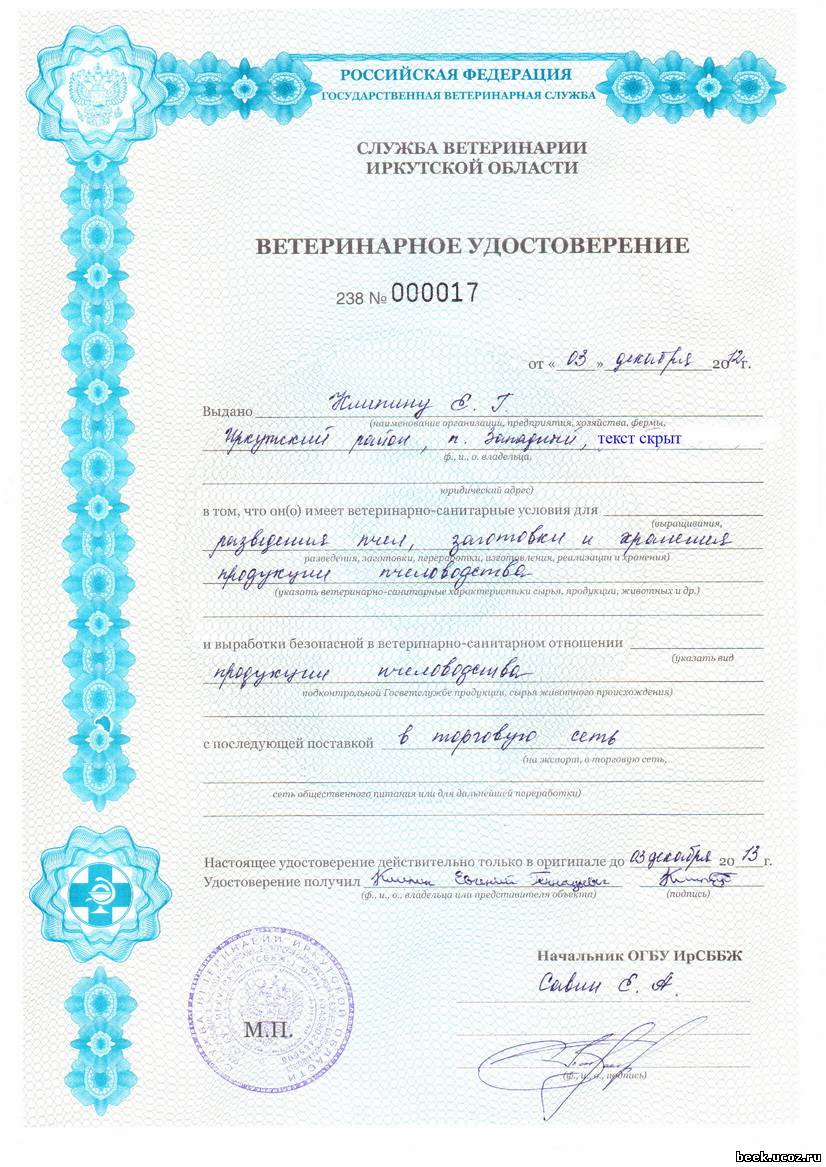 РОССИЙСКАЯ ФЕДЕРАЦИЯ
ГОСУДАРСТВЕННАЯ ВЕТЕРИНАРНАЯ СЛУЖБА
СЛУЖБА ВЕТЕРИНАРИИ
ИРКУТСКОЙ ОБЛАСТИ
ВЕТЕРИНАРНОЕ УДОСТОВЕРЕНИЕ
238 № 000017
от «03» декабря 2012г.
Выдано Клипину Е. Г.
(наименование организации, предприятия, хозяйства, фермы,
Иркутский район, п. Западный, текст скрыт
ф., и., о. владельца,
юридический адрес)
в том, что он(о) имеет ветеринарно-санитарные условия для
(выращивания,
разведения пчел, заготовки и хранения
разведения, заготовки, переработки, изготовления, реализации и хранения)
продукции пчеловодства
(указать ветеринарно-санитарные характеристики сырья, продукции, животных и др.)
и выработки безопасной в ветеринарно-санитарном отношении
(указать вид
продукции пчеловодства
подконтрольной Госветслужбе продукции, сырья животного происхождения)
с последующей поставкой в торговую сеть
(на экспорт, в торговую сеть,
сеть общественного питания или для дальнейшей переработки)
Настоящее удостоверение действительно только в оригинале до 03 декабря 2013г.
Удостоверение получил Клипин Евгений Геннадьевич
(ф., и., о., владельца или представителя объекта) (подпись)
Начальник ОГБУ ИрСББЖ
Савин Е. А.
М.П.
(ф., и., о., подпись)
СЛУЖБА ВЕТЕРИНАРИИ ИРКУТСКОЙ ОБЛАСТИ
beek.ucoz.ru